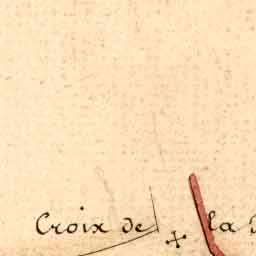 Croix de la